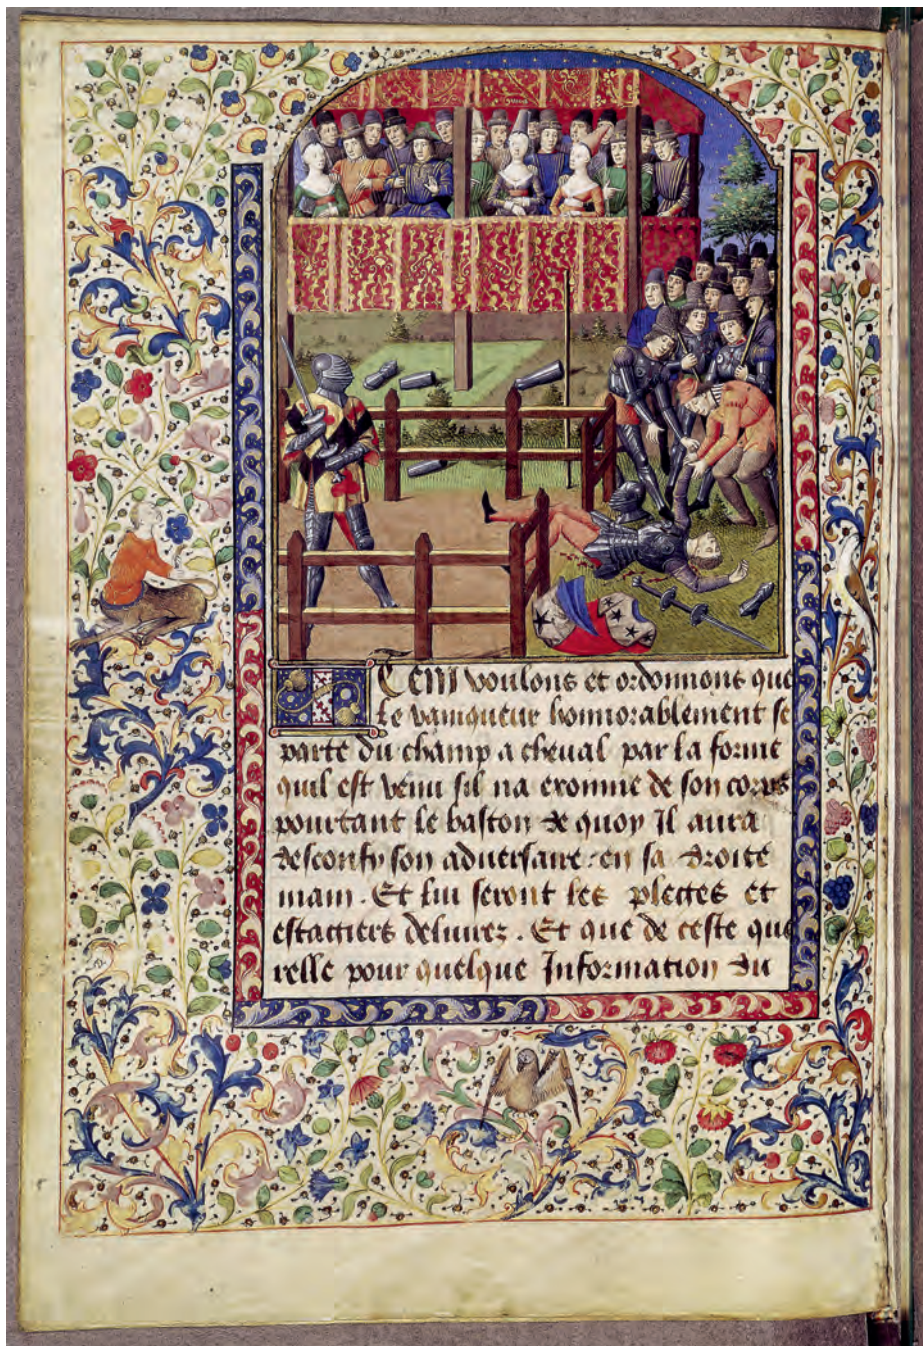 Item voulons et ordonnons que
le vainqueur honnorablement se
parte du champ a cheval par la forme
quil est venu sil na exonine de son corps
pourtant le baston de quoy Il aura
desconfy son adversaire en sa droite
main. Et lui seront les plectes et
estactiers delivrez. Et que de ceste que
relle pour quelque Information du